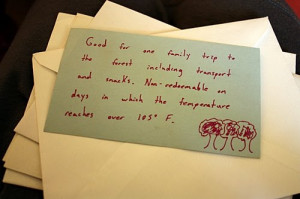 Good for one family trip to
the forest including transport
and snacks. Non-redeemable on
days in which the temperature
reaches over 105° F.